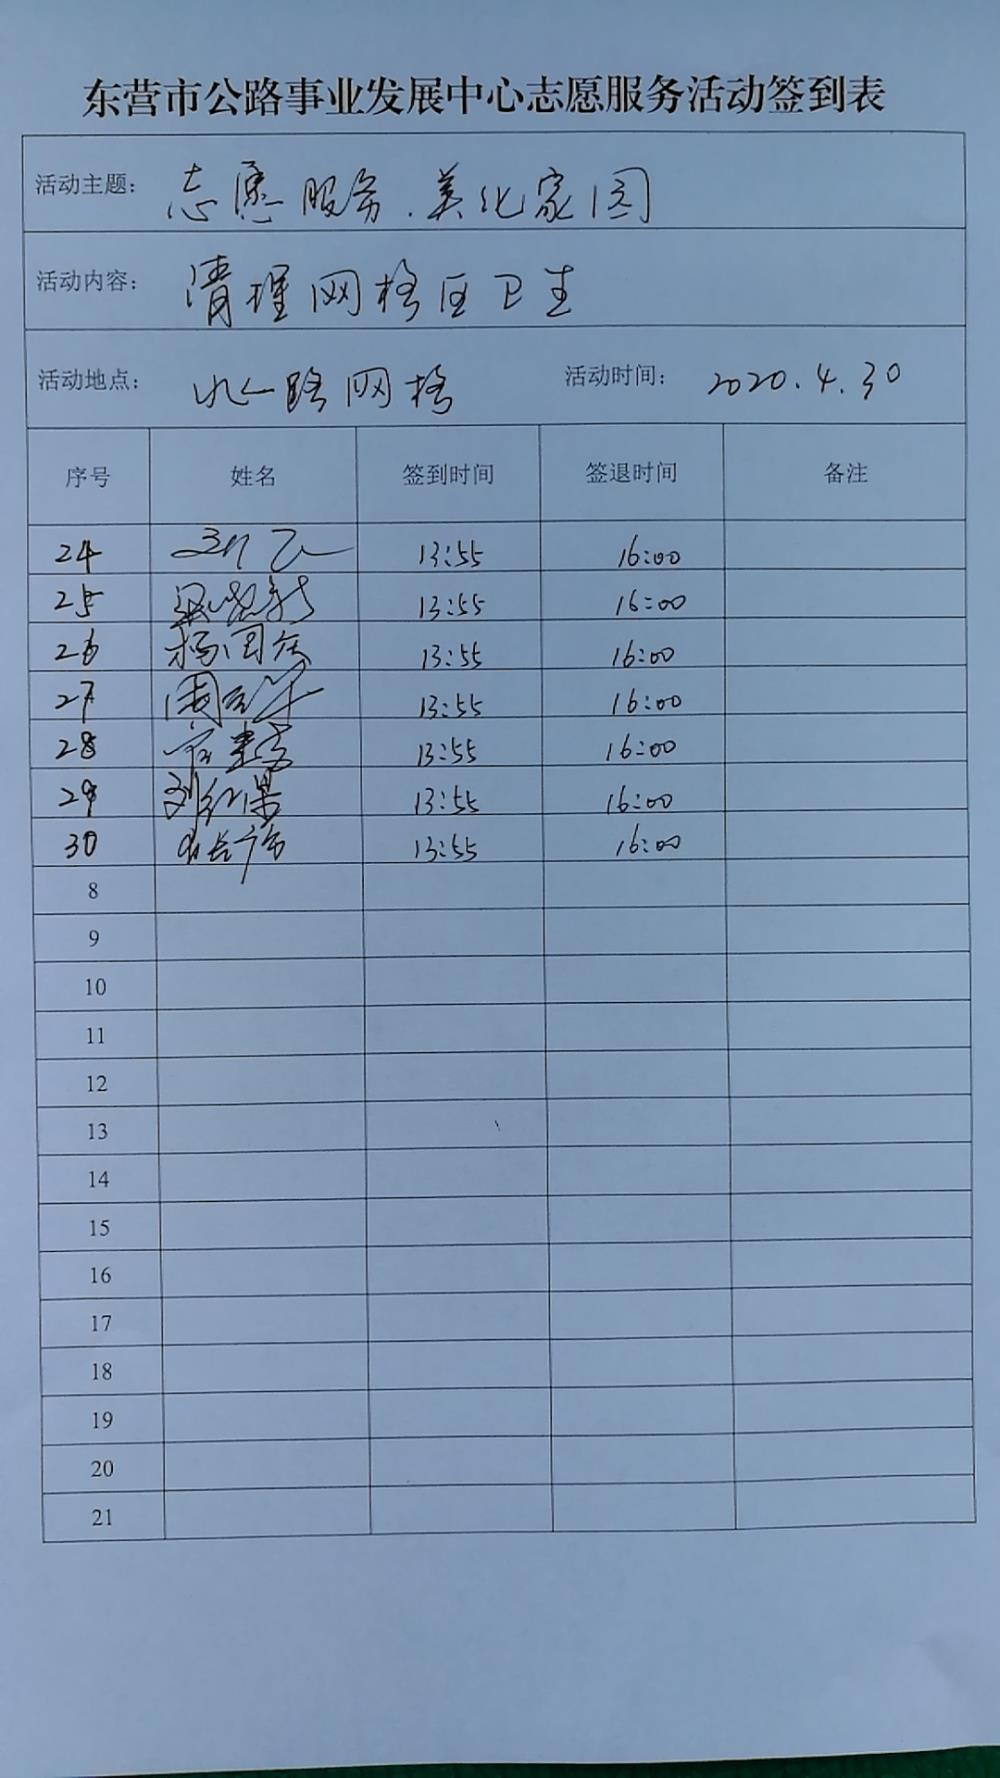 东营市公路事业发展中心志愿服务活动签到表
活动主题: 志愿服务.美化家园
活动内容: 清理网格区卫生
活动地点: 路网格 活动时间: 2020.4.30
序号 姓名 签到时间 签退时间 备注
24 13:55 16:00
25 13:55 16:00
26 杨国庆 13:55 16:00
27 13:55 16:00
28 13:55 16:00
29 刘红果 13:55 16:00
30 13:55 16:00
8
9
10
11
12
13
14
15
16
17
18
19
20
21